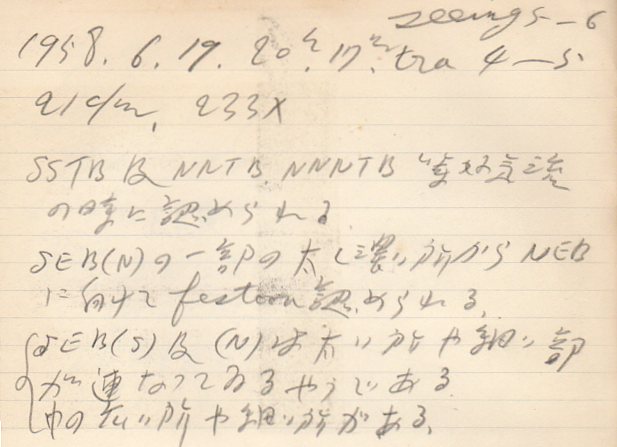 seeing 5-6
1958. 6. 19. 20h 17m, tra 4-5
21c/m, 233X
SSTB 及 NNTB NNNTB が最好気流
の時に認められる
SEB(N)の一部の太く濃い所から NEB
に向けて festoon 認められる.
SEB(S)及(N)は太い所や細い部
が連なってゐるやうである
中の広い所や細い所がある.